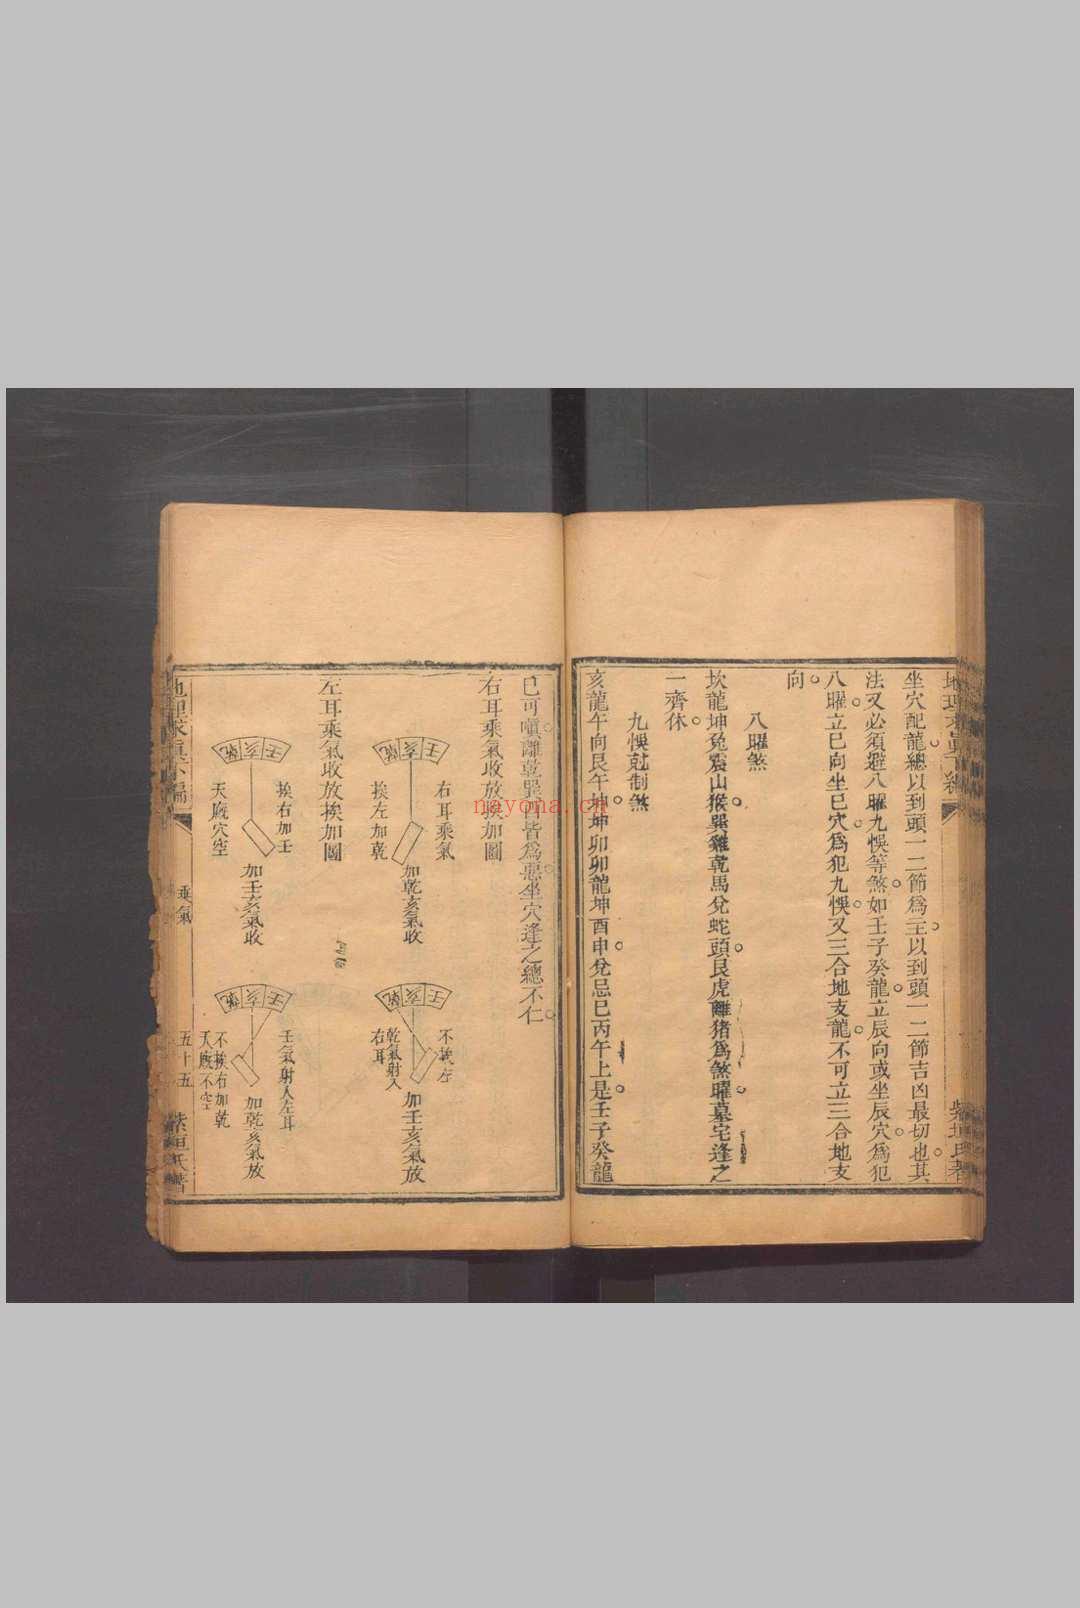 坐穴配龍總以到頭一二節爲主以到頭一二節吉凶最切也其
法又必須避八曜九悞等煞如壬子癸龍立辰向或坐辰穴爲犯
八曜立巳向坐巳穴爲犯九悞又三合地支龍不可立三合地支
向
八曜煞
坎龍坤兔震山猴巽雞乾馬兌蛇頭艮虎離猪爲煞曜墓宅逢之
一齊休
九悞尅制煞
亥龍午向艮午坤坤卯卯龍坤酉申兌忌巳丙午上是壬子癸龍
巳可嗔離乾巽皆爲惡坐穴逢之總不仁
右耳乘氣收放挨加圖
壬亥乾
右耳乘氣
挨左加乾
加乾亥氣收
壬亥乾
不挨左
乾氣射入
右耳
加壬亥氣放
左耳乘氣收放挨加圖
壬亥乾
挨右加壬
天厩穴空
加壬亥氣收
壬亥乾
壬氣射入左耳
不挨右加乾
天厩不空
加乾亥氣放
乘氣
五十五
紫垣氏著
nayona.cn